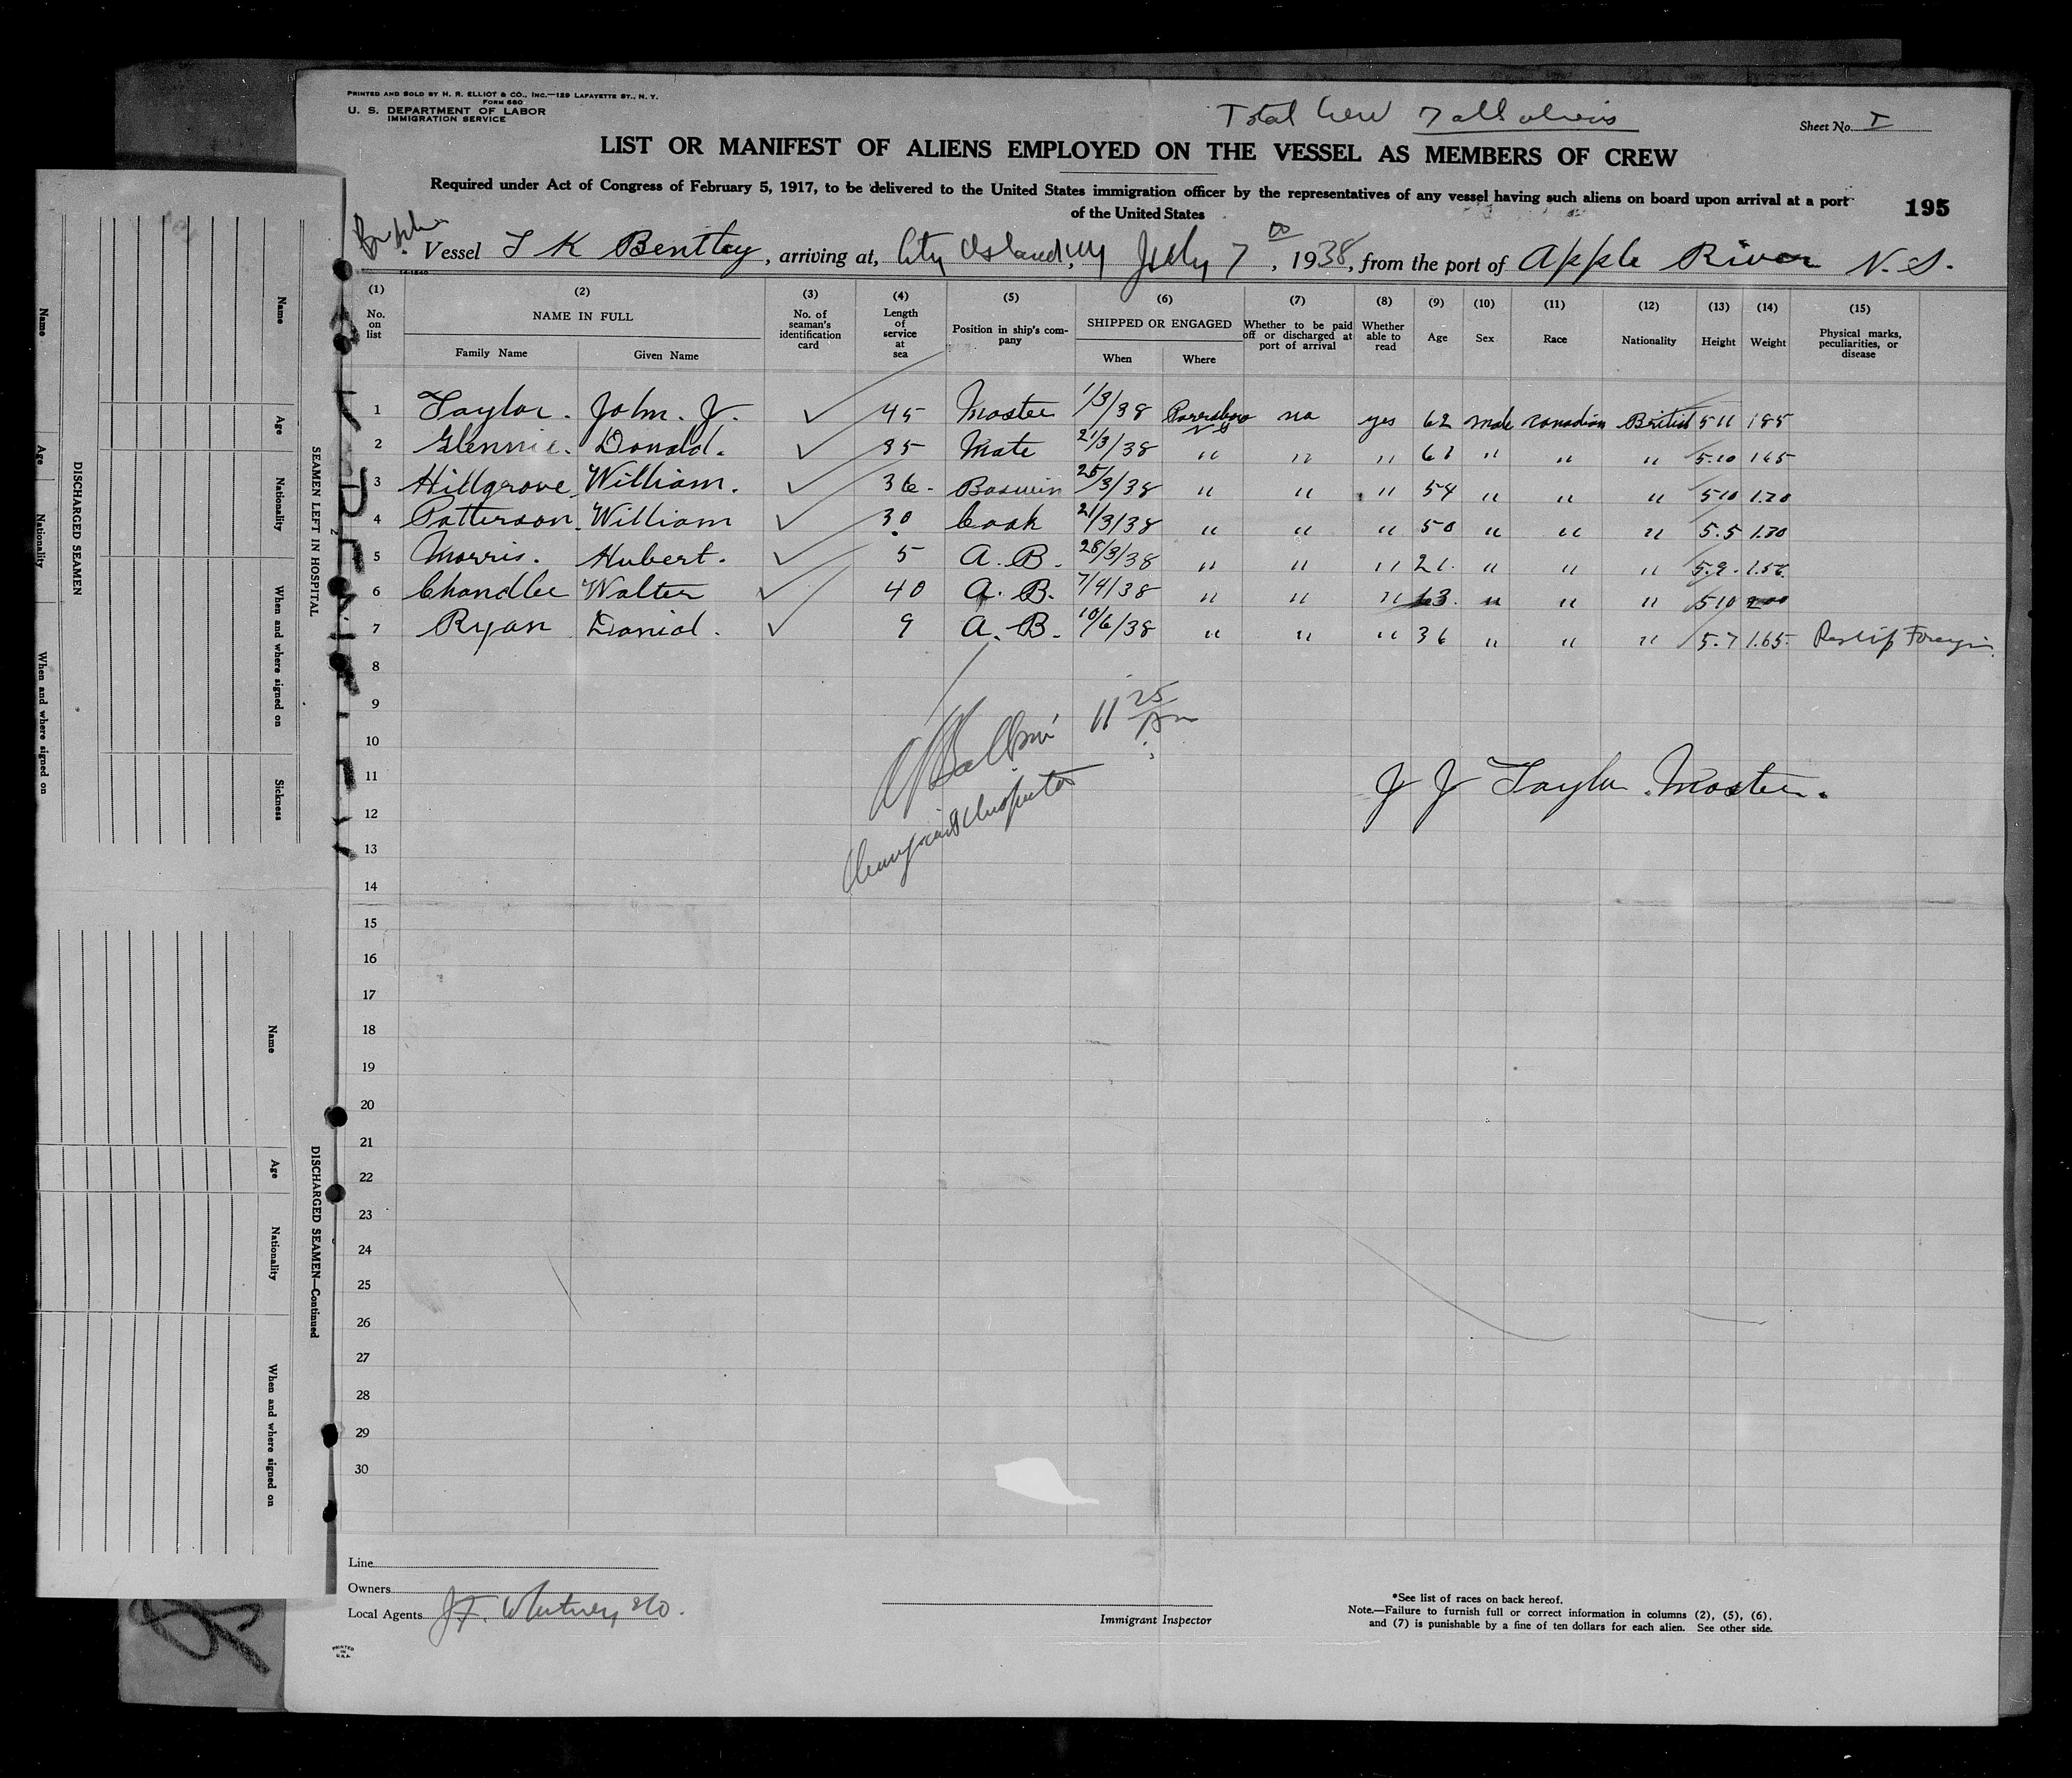 PRINTED AND SOLD BY H. R. ELLIOT & CO., INC.—129 LAFAYETTE ST., N. Y.
FORM 680
U. S. DEPARTMENT OF LABOR
IMMIGRATION SERVICE
Total Crew 7 all aliens
Sheet No. I
LIST OR MANIFEST OF ALIENS EMPLOYED ON THE VESSEL AS MEMBERS OF CREW
Required under Act of Congress of February 5, 1917, to be delivered to the United States immigration officer by the representatives of any vessel having such aliens on board upon arrival at a port
of the United States
195
Vessel T K Bentley, arriving at, City Island, NY July 7, 1938, from the port of Apple River N. S.
14-1240
(1) No. on list (2) NAME IN FULL Family Name Given Name (3) No. of seaman's identification card (4) Length of service at sea (5) Position in ship's company (6) SHIPPED OR ENGAGED When Where (7) Whether to be paid off or discharged at port of arrival (8) Whether able to read (9) Age (10) Sex (11) Race (12) Nationality (13) Height (14) Weight (15) Physical marks, peculiarities, or disease
1 Taylor. John. J. ✓ 45 Master 1/3/38 Parrsboro N S no yes 62 male Canadian British 5 11 185
2 Glennie. Donald. ✓ 35 Mate 21/3/38 " " " 61 " " " 5.10 165
3 Hillgrove William. ✓ 36 Boswin 25/3/38 " " " 54 " " " 5 10 1.70
4 Patterson William ✓ 30 Cook 21/3/38 " " " 50 " " " 5.5 1.30
5 Morris. Hubert. ✓ 5 A. B. 28/3/38 " " " 21. " " " 5.9. 1.56.
6 Chandlee Walter ✓ 40 A. B. 7/4/38 " " " 63. " " " 5 10 200
7 Ryan Danial. ✓ 9 A. B. 10/6/38 " " " 36 " " " 5.7 1.65.
8
9
11 25 Am
10
11
J J Taylor. Master.
Immigrant Inspector
12
13
14
15
16
17
18
19
20
21
22
23
24
25
26
27
28
29
30
Line
Owners
Local Agents J.F. Whitney & Co.
Immigrant Inspector
*See list of races on back hereof.
Note.—Failure to furnish full or correct information in columns (2), (5), (6),
and (7) is punishable by a fine of ten dollars for each alien. See other side.
PRINTED
IN
U.S.A.
SEAMEN LEFT IN HOSPITAL
Name Age Nationality When and where signed on Sickness
DISCHARGED SEAMEN
Name Age Nationality When and where signed on
DISCHARGED SEAMEN—Continued
Name Age Nationality When and where signed on